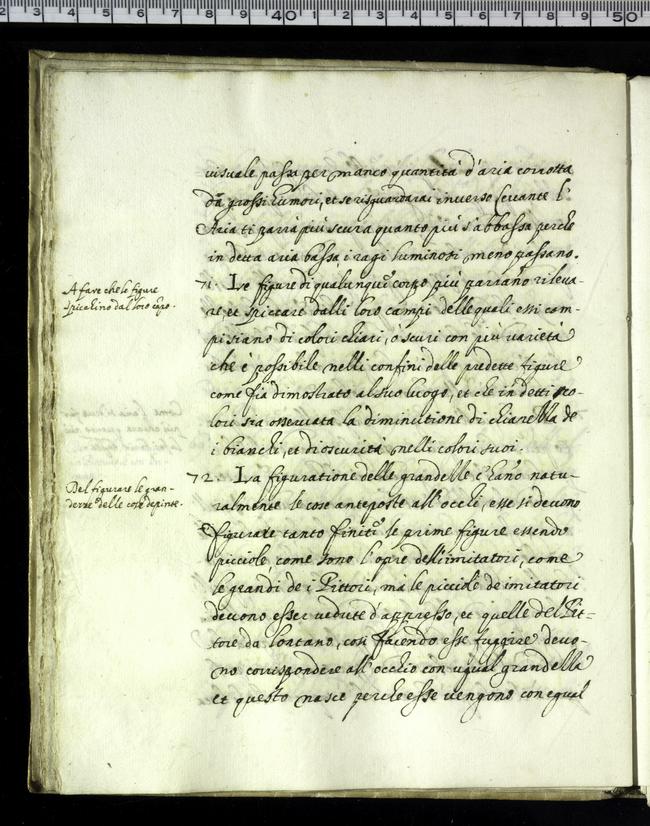 uisuale passa per manco quantità d'aria corrotta
dà grossi humori, et se risguardarai inuerso leuante l'
Aria ti parrà più scura quanto più s'abbassa perche
in detta aria bassa i ragi luminosi meno passano.
A fare che le figure
spichino dal loro campo.
71. Le figure di qualunque corpo più parrano rileua-
re et spiccare dalli loro campi delle quali essi cam-
pi siano di colori chiari, ò scuri con più varietà
che è possibile nelli confini delle predette figure
come fia dimostrato al suo luogo, et che in detti co-
lori sia osseruata la diminutione di chiarezza de
i bianchi, et di oscurità nelli colori suoi.
Del figurare le gran-
dezze delle cose depinte.
72. La figuratione delle grandezze c'hano natu-
ralmente le cose anteposte all'occhi, esse si deuono
figurare tanto finite le prime figure essendo
picciole come sono l'opre dell'imitatori, come
le grandi de i Pittori, mà le picciole de imitatori
deuono esser uedute d'appresso, et quelle del Pit-
tore da lontano, così facendo esse figure deuo-
no corrispondere all'occhio con ugual grandezza
et questo nasce perche esse uengono con egual